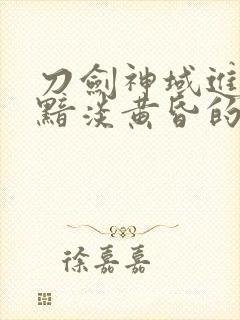 刀劍神域進
黯淡黃昏的
徐嘉嘉